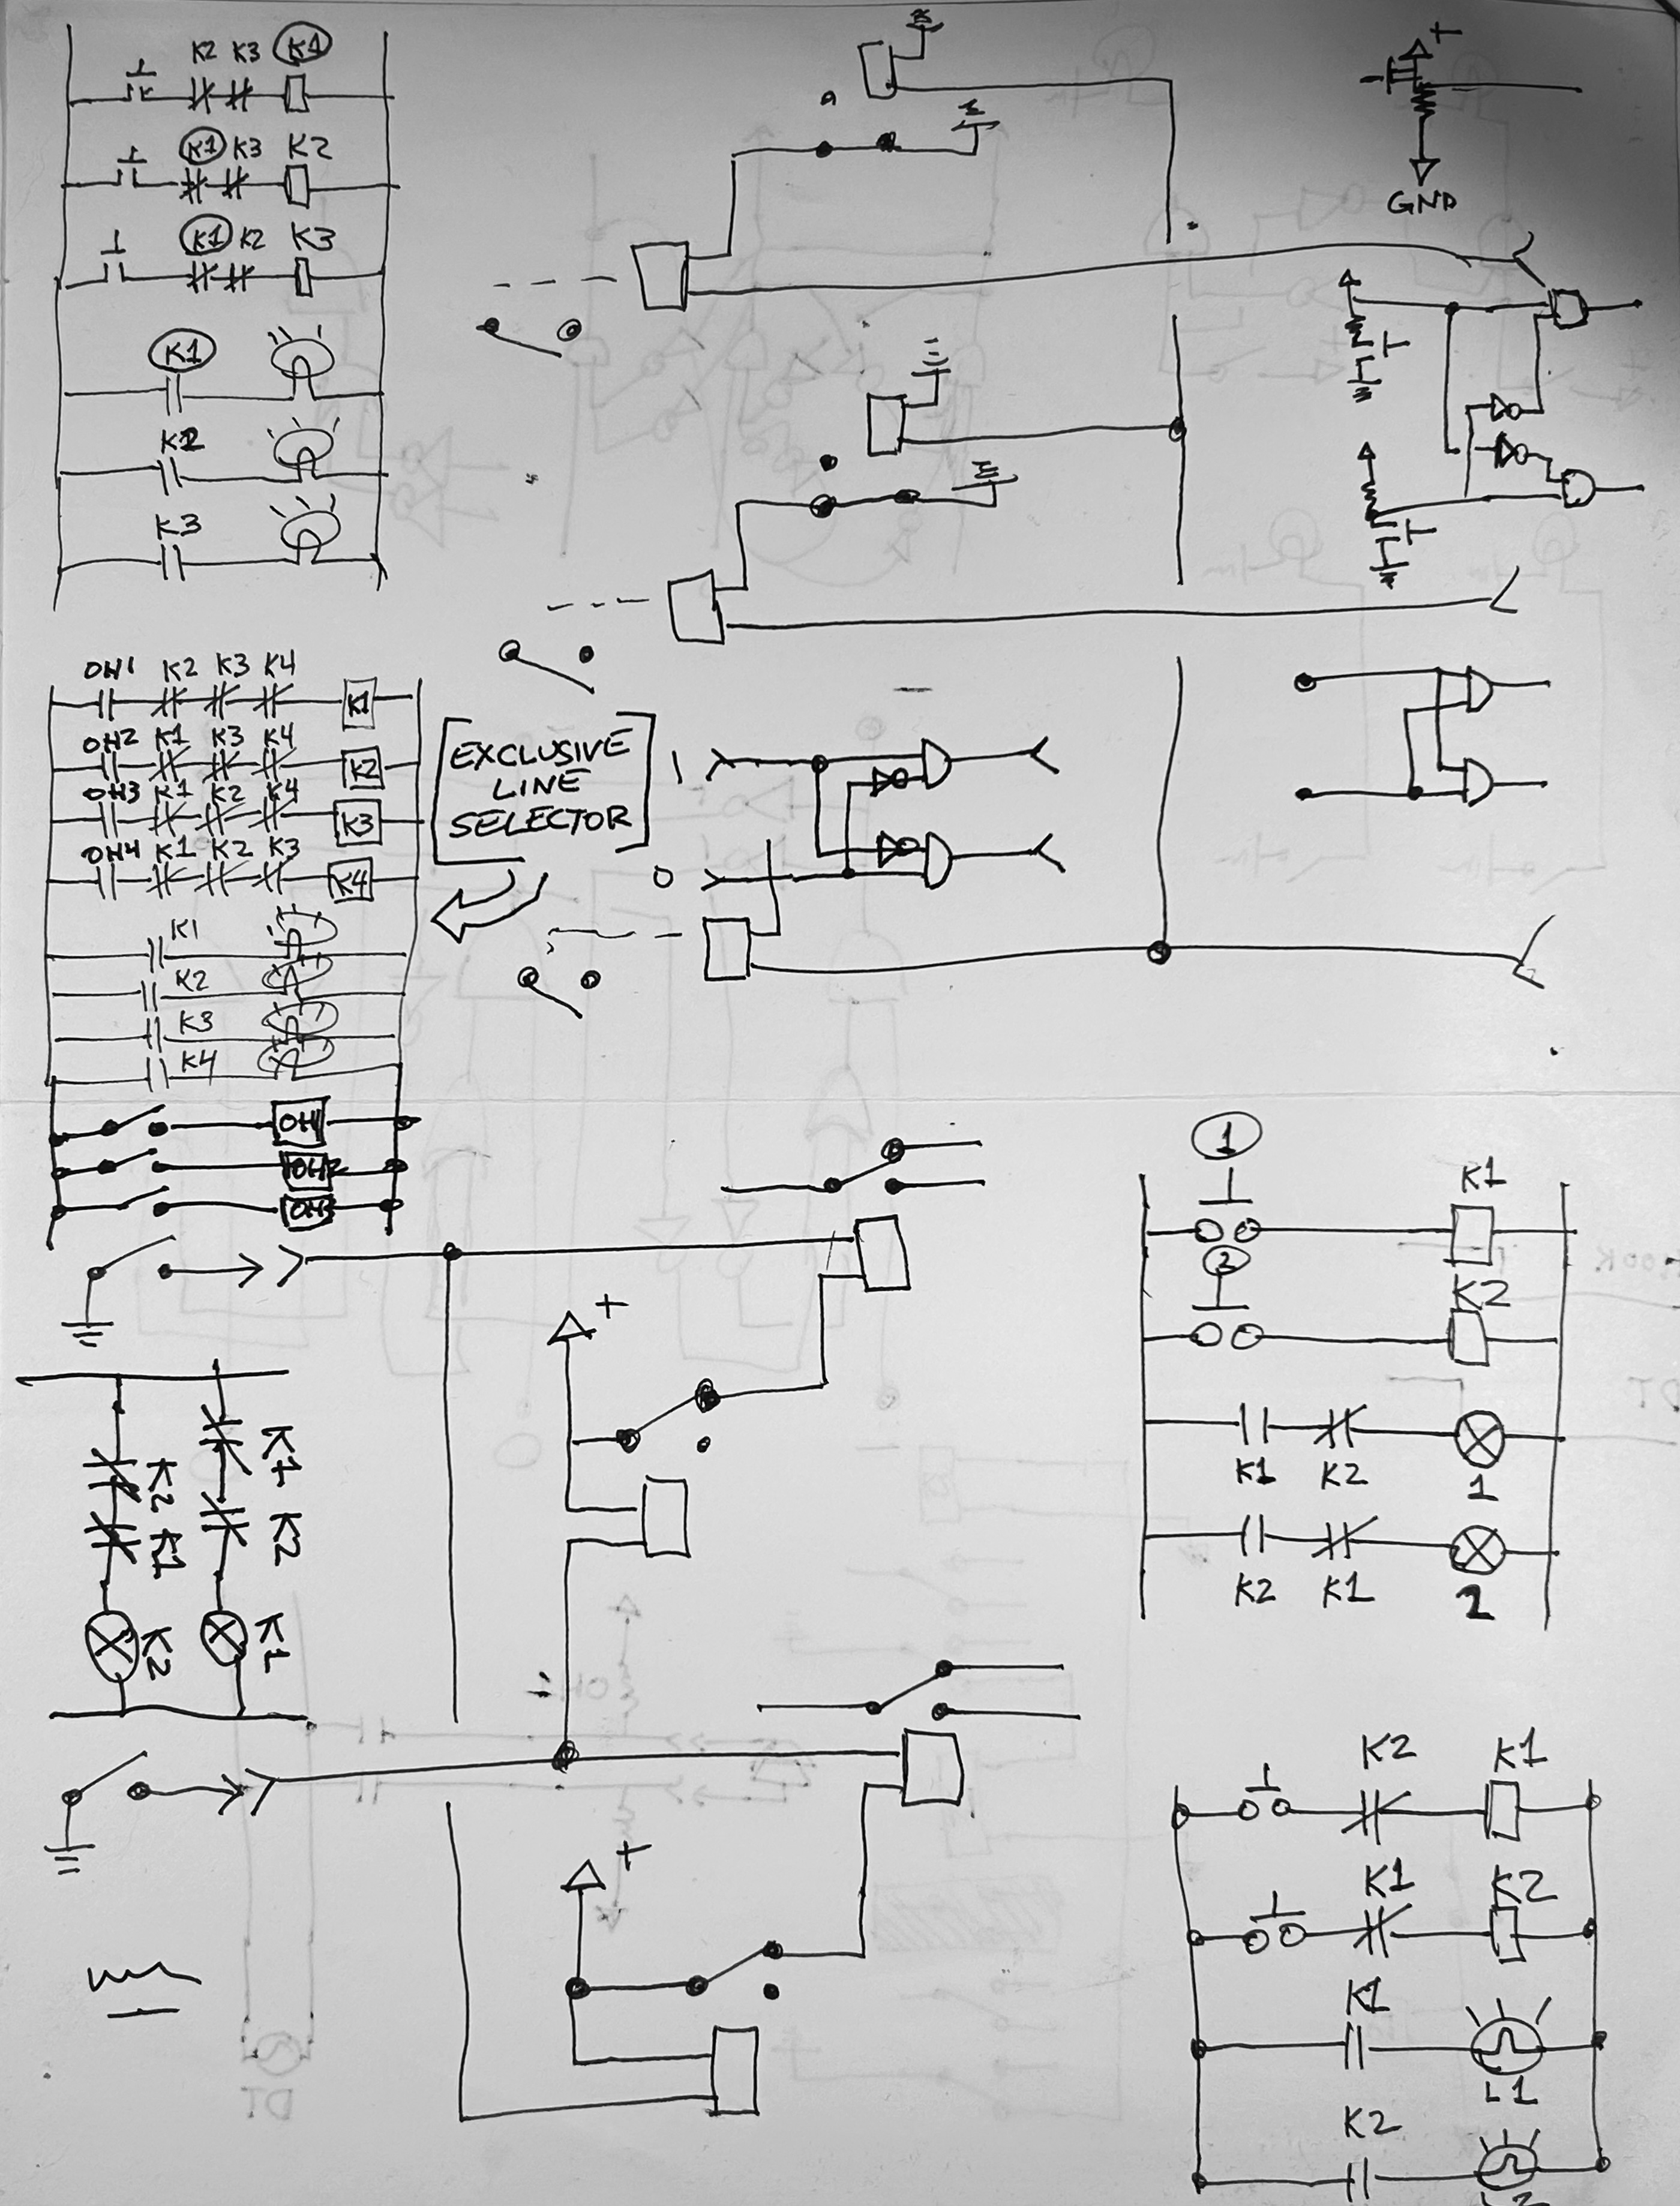 K2 K3 K1
K1 K3 K2
K1 K2 K3
K1
K2
K3
+
GND
OH1 K2 K3 K4 K1
OH2 K1 K3 K4 K2
OH3 K1 K2 K4 K3
OH4 K1 K2 K3 K4
K1
K2
K3
K4
OH1
OH2
EXCLUSIVE
LINE
SELECTOR
1
0
1
K1
2
K2
K1 K2
1
K2 K1
2
+
K2 K1 K2
K1 K2 K1
+
K2 K1
K1 K2
K1
L1
K2